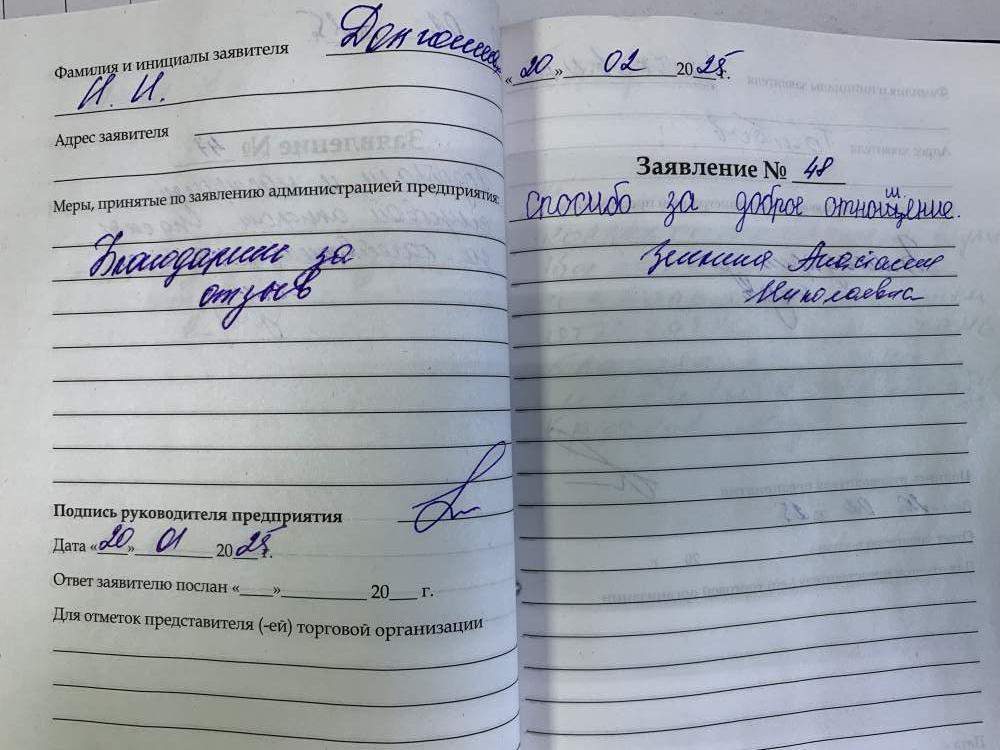 Фамилия и инициалы заявителя
Н. Н.
Адрес заявителя
Меры, принятые по заявлению администрацией предприятия:
Благодарим за
отзыв
Подпись руководителя предприятия
Дата «20» 01 2025 г.
Ответ заявителю послан «___»__________ 20___ г.
Для отметок представителя (-ей) торговой организации
«20» 02 2025 г.
Заявление № 48
спосибо за доброе отношение.
Анастасия
Николаевна